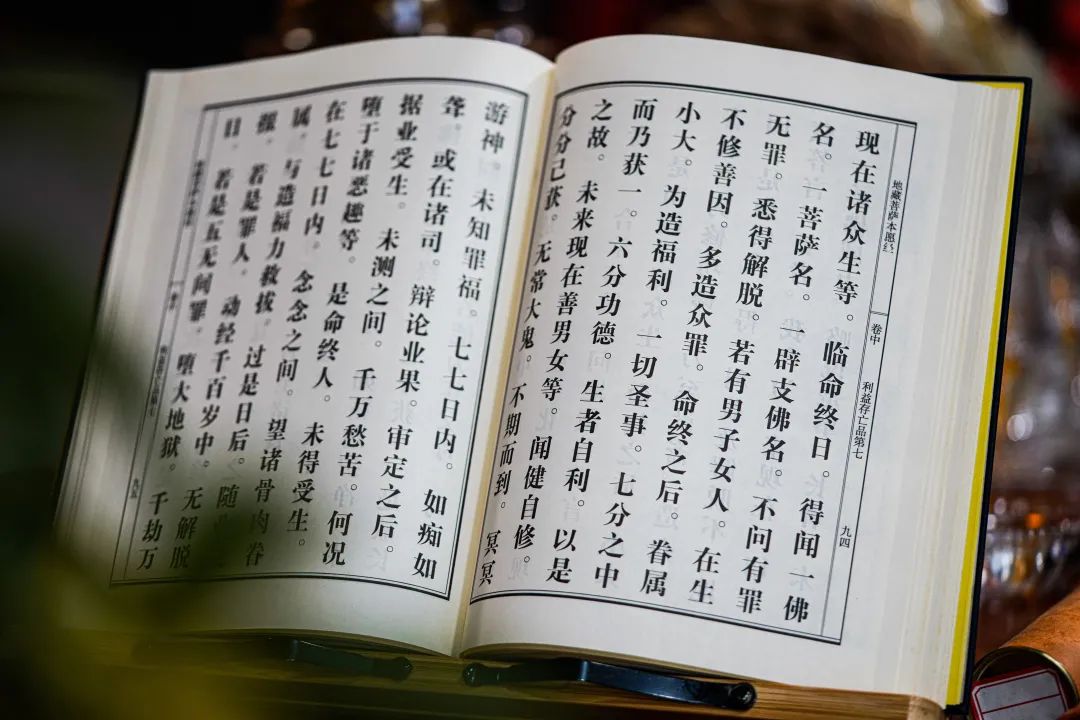 地藏菩萨本愿经 卷中 利益存亡品第七 九四
现在诸众生等。临命终日。得闻一佛
名。一菩萨名。一辟支佛名。不问有罪
无罪。悉得解脱。若有男子女人。在生
不修善因。多造众罪。命终之后。眷属
小大。为造福利。一切圣事。七分之中
而乃获一。六分功德。生者自利。以是
之故。未来现在善男女等。闻健自修。
分分己获。无常大鬼。不期而到。冥冥
游神。未知罪福。七七日内。如痴如
聋。或在诸司。辩论业果。审定之后。
据业受生。未测之间。千万愁苦。何况
堕于诸恶趣等。是命终人。未得受生。
在七七日内。念念之间。望诸骨肉眷
属。与造福力救拔。过是日后。随
报。若是罪人。动经千百岁中。无解脱
日。若是五无间罪。堕大地狱。千劫万
九五